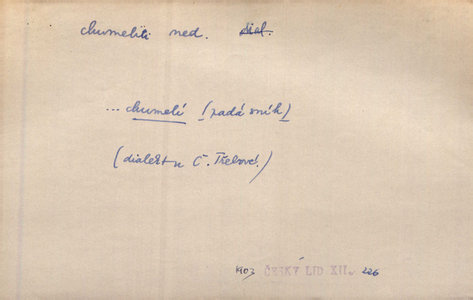 chumeliti ned. dial.
... chumelí (padá sníh)
(dialekt u Č. Třebové.)
1903 ČESKÝ LID XII. 226